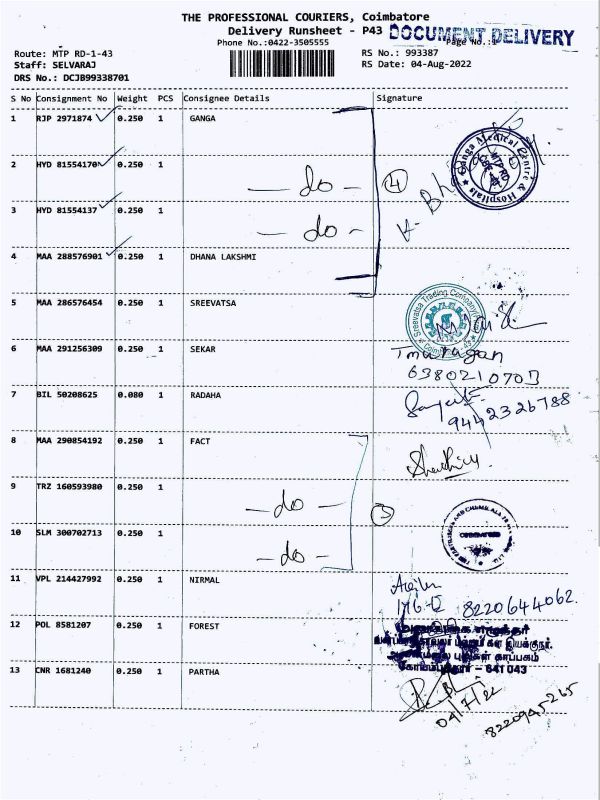 THE PROFESSIONAL COURIERS, Coimbatore
Delivery Runsheet - P43
DOCUMENT DELIVERY
Phone No.:0422-3505555
Page No.:1
Route: MTP RD-1-43
Staff: SELVARAJ
DRS No.: DCJB99338701
RS No.: 993387
RS Date: 04-Aug-2022
S No Consignment No Weight PCS Consignee Details Signature
1 RJP 2971874 0.250 1 GANGA
Ganga Medical Centre & Hospitals
MTP RD
2 HYD 81554170 0.250 1 - do -
4
3 HYD 81554137 0.250 1 - do -
4 MAA 288576901 0.250 1 DHANA LAKSHMI
5 MAA 286576454 0.250 1 SREEVATSA
Sreevatsa Trading Company
Coimbatore - 43
6 MAA 291256309 0.250 1 SEKAR
Tmurugan
6380210703
7 BIL 50208625 0.080 1 RADAHA
9442326788
8 MAA 290854192 0.250 1 FACT
9 TRZ 160593980 0.250 1 - do -
3
10 SLM 300702713 0.250 1 - do -
11 VPL 214427992 0.250 1 NIRMAL
8220644062
12 POL 8581207 0.250 1 FOREST
கோயம்புத்தூர் - 641 043
13 CNR 1681240 0.250 1 PARTHA
8220945265